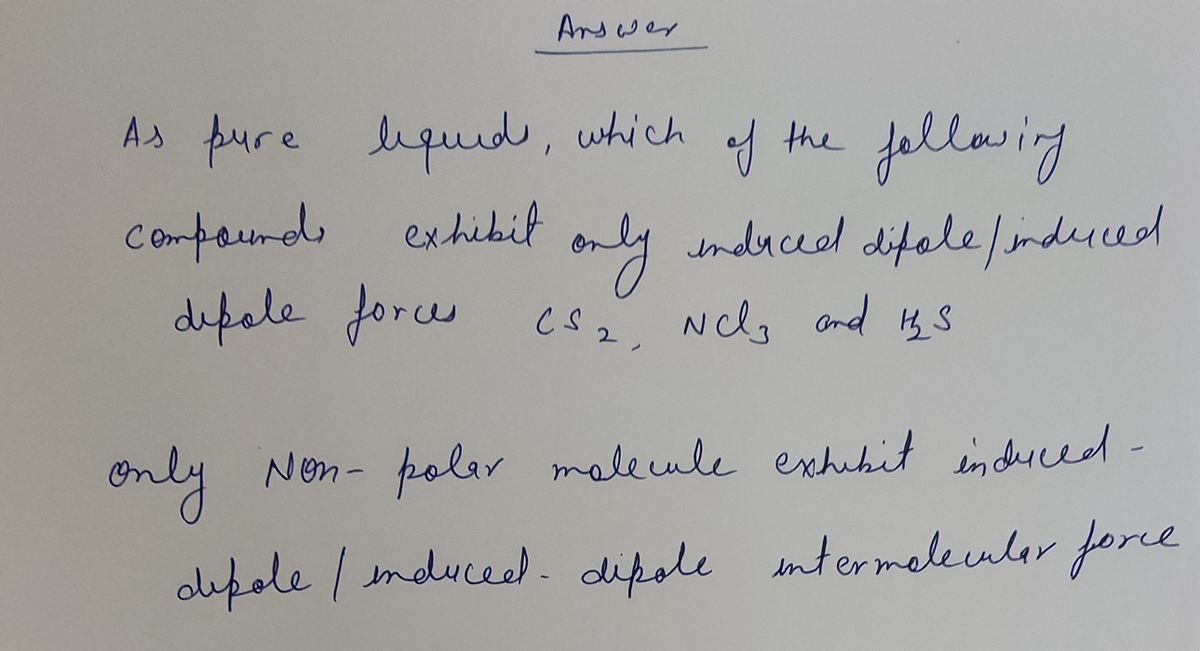 Answer
As pure liquids, which of the following
compounds exhibit only induced dipole/induced
dipole forces CS2, NCl3 and H2S
only Non-polar molecule exhibit induced-
dipole / induced-dipole intermolecular force